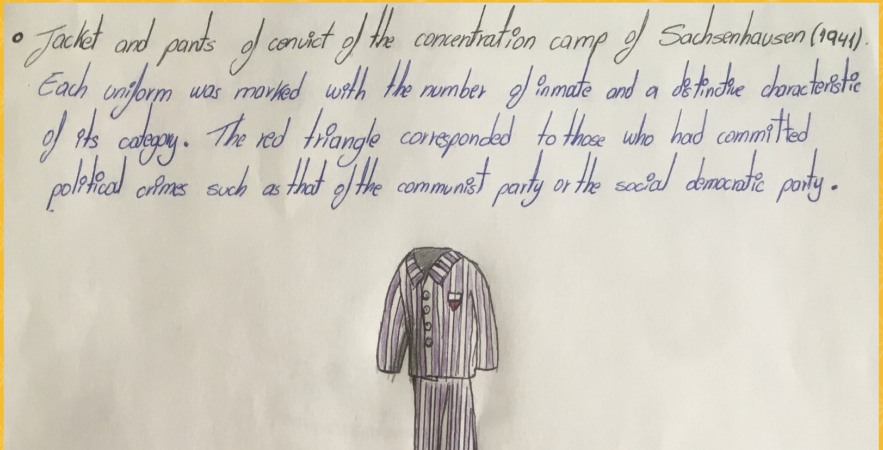 • Jacket and pants of convict of the concentration camp of Sachsenhausen (1941).
Each uniform was marked with the number of inmate and a distinctive characteristic
of its category. The red triangle corresponded to those who had committed
political crimes such as that of the communist party or the social democratic party.